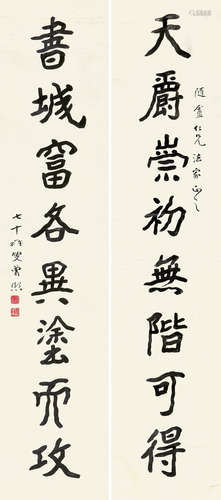 天爵崇初無階可得
隨盦仁兄法家正之
書城富各異塗而攻
七十叟曾熙